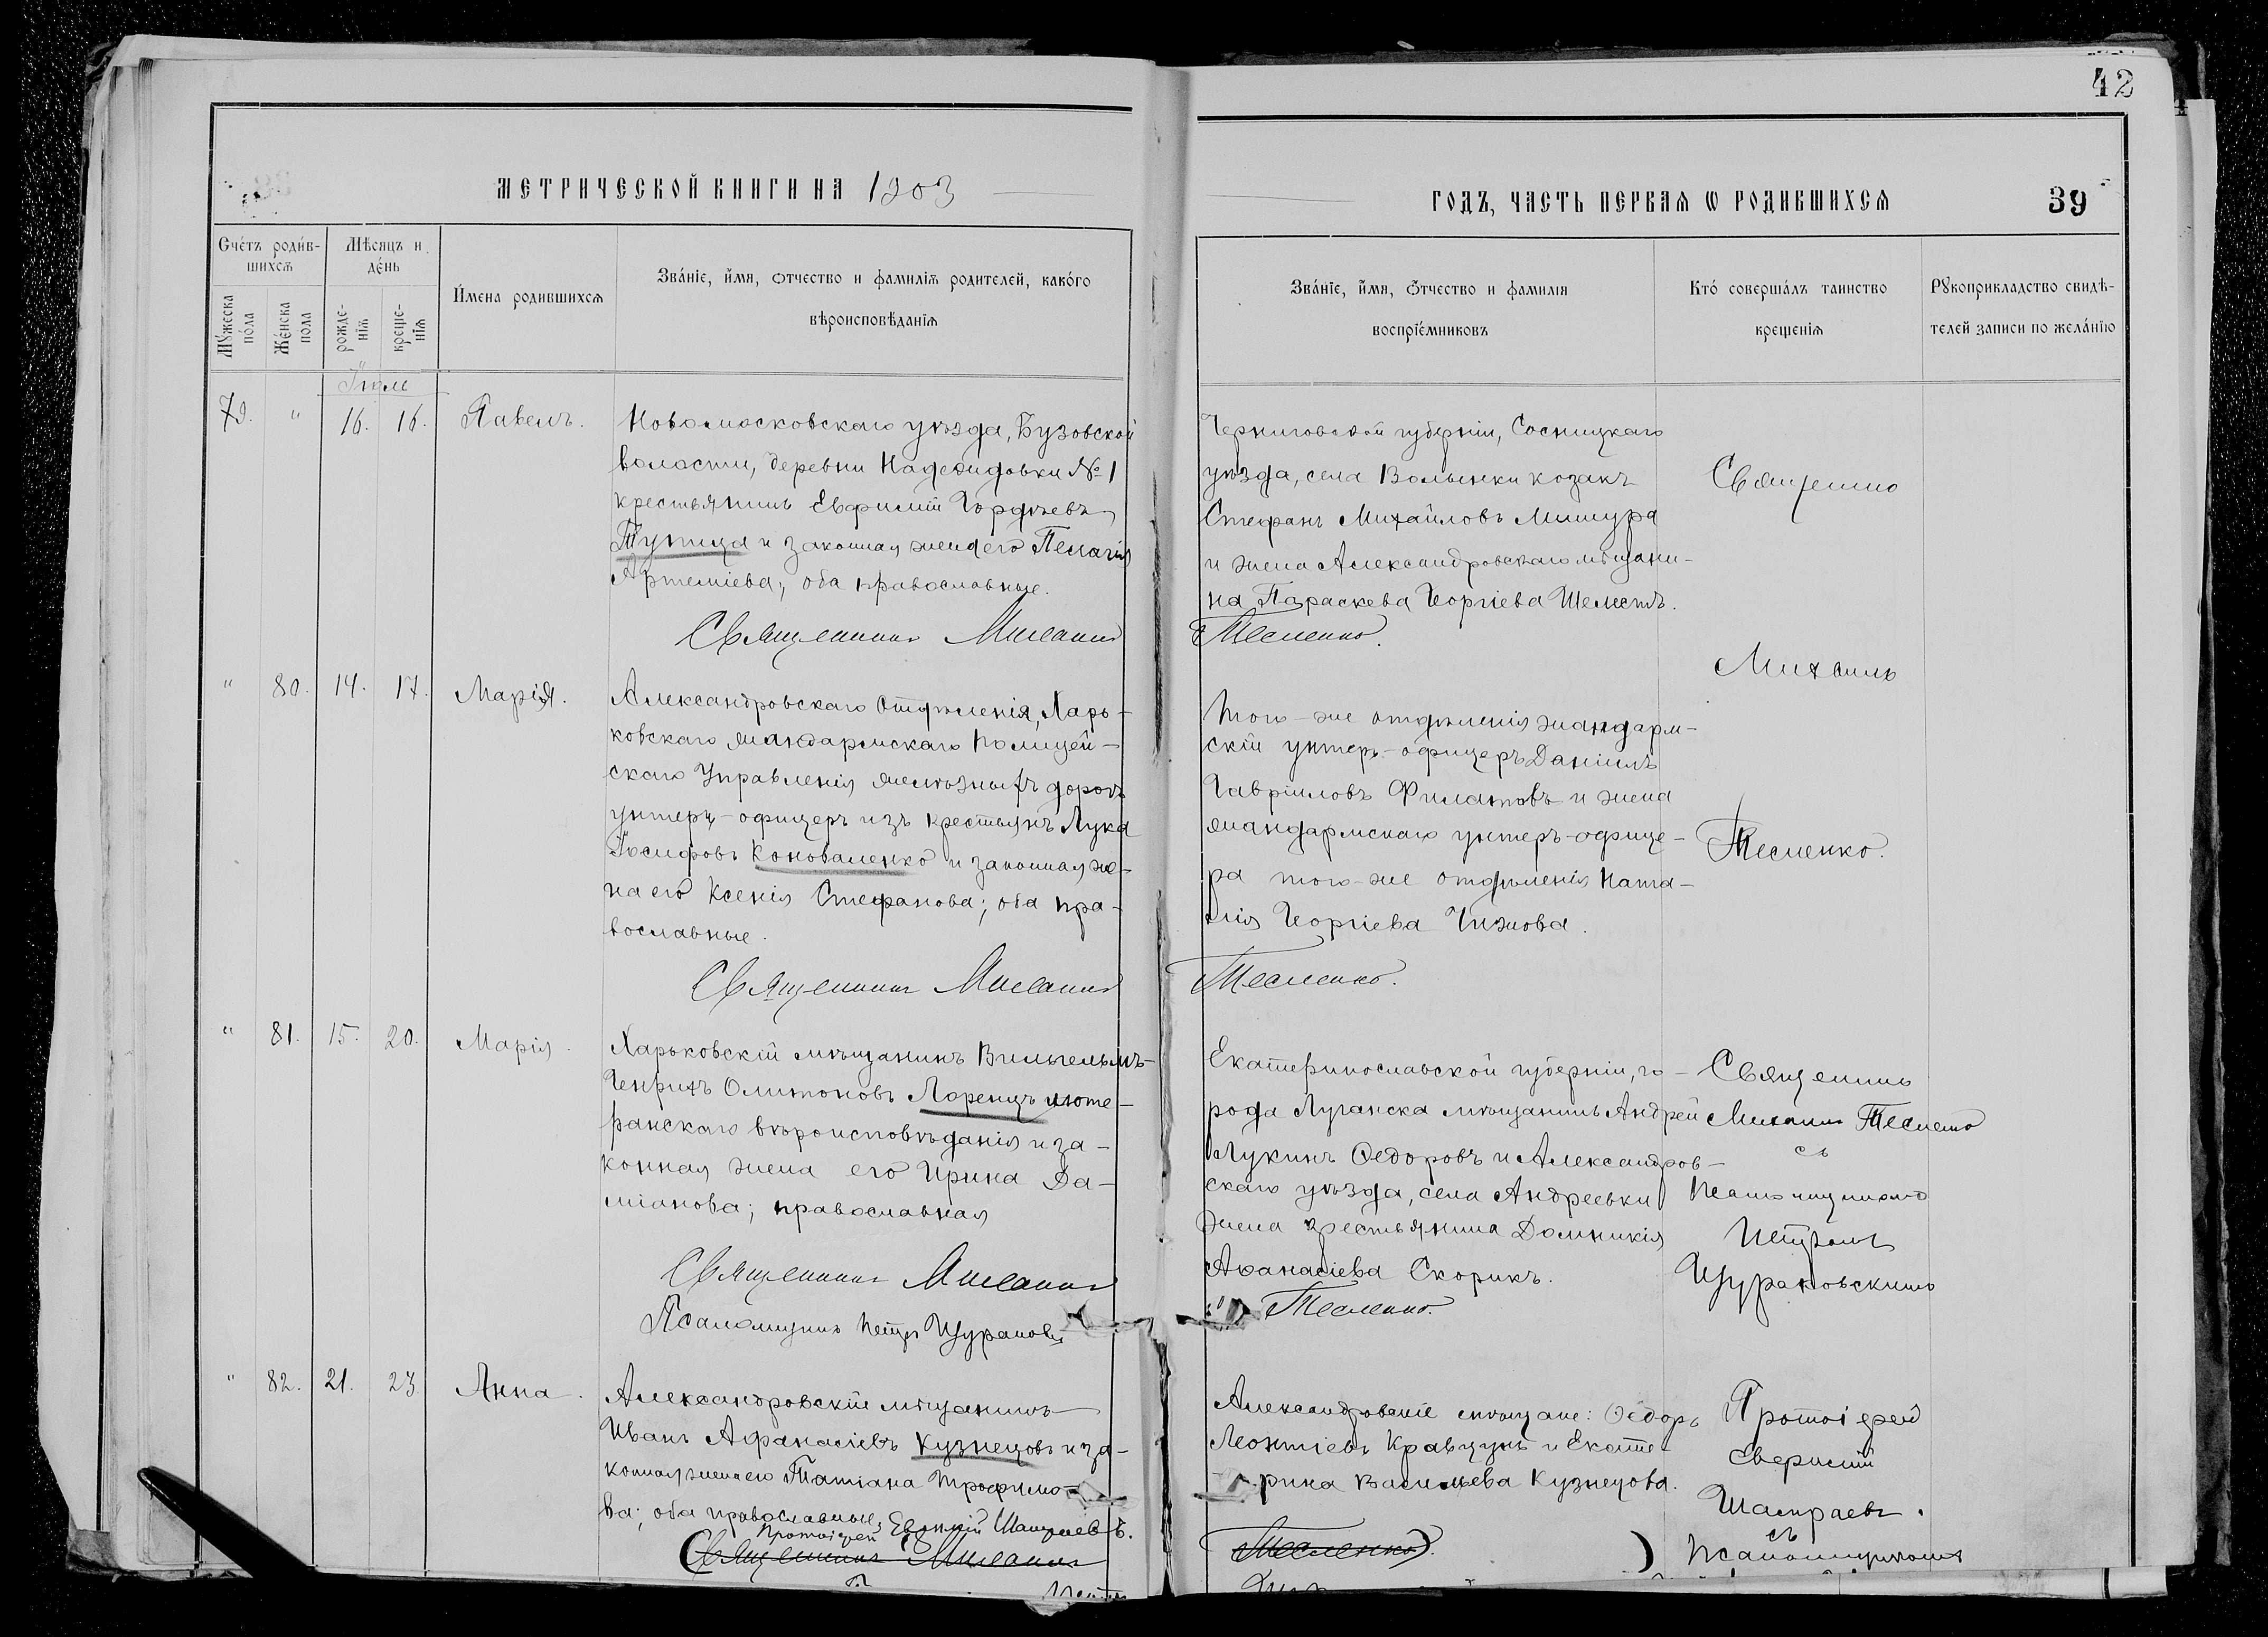 42
МЕТРИЧЕСКОЙ КНИГИ НА 1903
ГОДЪ, ЧАСТЬ ПЕРВАЯ Ѡ РОДИВШИХСЯ
39
Счетъ родив-
шихся
Мѣсяцъ и
день
Мужеска
пола
Женска
пола
рожде-
нія
креще-
нія
Имена родившихся
Званіе, имя, отчество и фамилія родителей, какого
вѣроисповѣданія
Званіе, имя, отчество и фамилія
воспріемниковъ
Кто совершалъ таинство
крещенія
Рукоприкладство свидѣ-
телей записи по желанію
79. " 16. 16. Павелъ.
Новомосковскаго уѣзда, Бузовской
волости, деревни Надеждовки №1
крестьянинъ Евфимій Гордѣевъ
и законная жена его Пелагія
Артеміева; оба православные.
Священникъ Михаилъ
Черниговской губерніи, Сосницкаго
уѣзда, села Волынки козакъ
Стефанъ Михайловъ Мишура
и жена Александровскаго мѣщани-
на Параскева Георгіева Шелестъ.
Тесленко.
Священникъ
Михаилъ
Тесленко.
" 80. 14. 17. Марія.
Александровскаго Отдѣленія, Харь-
ковскаго жандармскаго полицей-
скаго Управленія желѣзныхъ дорогъ
унтеръ-офицеръ изъ крестьянъ Лука
Іосифовъ Коноваленко и законная же-
на его Ксенія Стефанова; оба пра-
вославные.
Священникъ Михаилъ
Того-же отдѣленія жандарм-
скій унтеръ-офицеръ Даніилъ
Гавріиловъ Филатовъ и жена
жандармскаго унтеръ-офице-
ра того-же отдѣленія Ната-
лія Георгіева Чижова.
Тесленко.
" 81. 15. 20. Марія.
Харьковскій мѣщанинъ Вильгельмъ-
Генрихъ Лоренцъ люте-
ранскаго вѣроисповѣданія и за-
конная жена его Ирина Да-
міанова; православная
Священникъ Михаилъ
Псаломщикъ Петръ
Екатеринославской губерніи, го-
рода Луганска мѣщанинъ Андрей
Лукинъ Ѳедоровъ и Александров-
скаго уѣзда, села Андреевки
жена крестьянина Домникія
Аѳанасіева Скорикъ.
Тесленко.
Священникъ
Михаилъ Тесленко
съ
псаломщикомъ
Петромъ
" 82. 21. 23. Анна.
Александровскій мѣщанинъ
Иванъ Афанасіевъ Кузнецовъ и за-
конная жена его Татіана Трофимо-
ва; оба православные.
Протоіерей Евгеній
(Священникъ Михаилъ
Александровскіе мѣщане: Ѳедоръ
Леонтіевъ Кравцунъ и Екате-
рина Васильева Кузнецова.
Тесленко).
Протоіерей
съ
псаломщикомъ